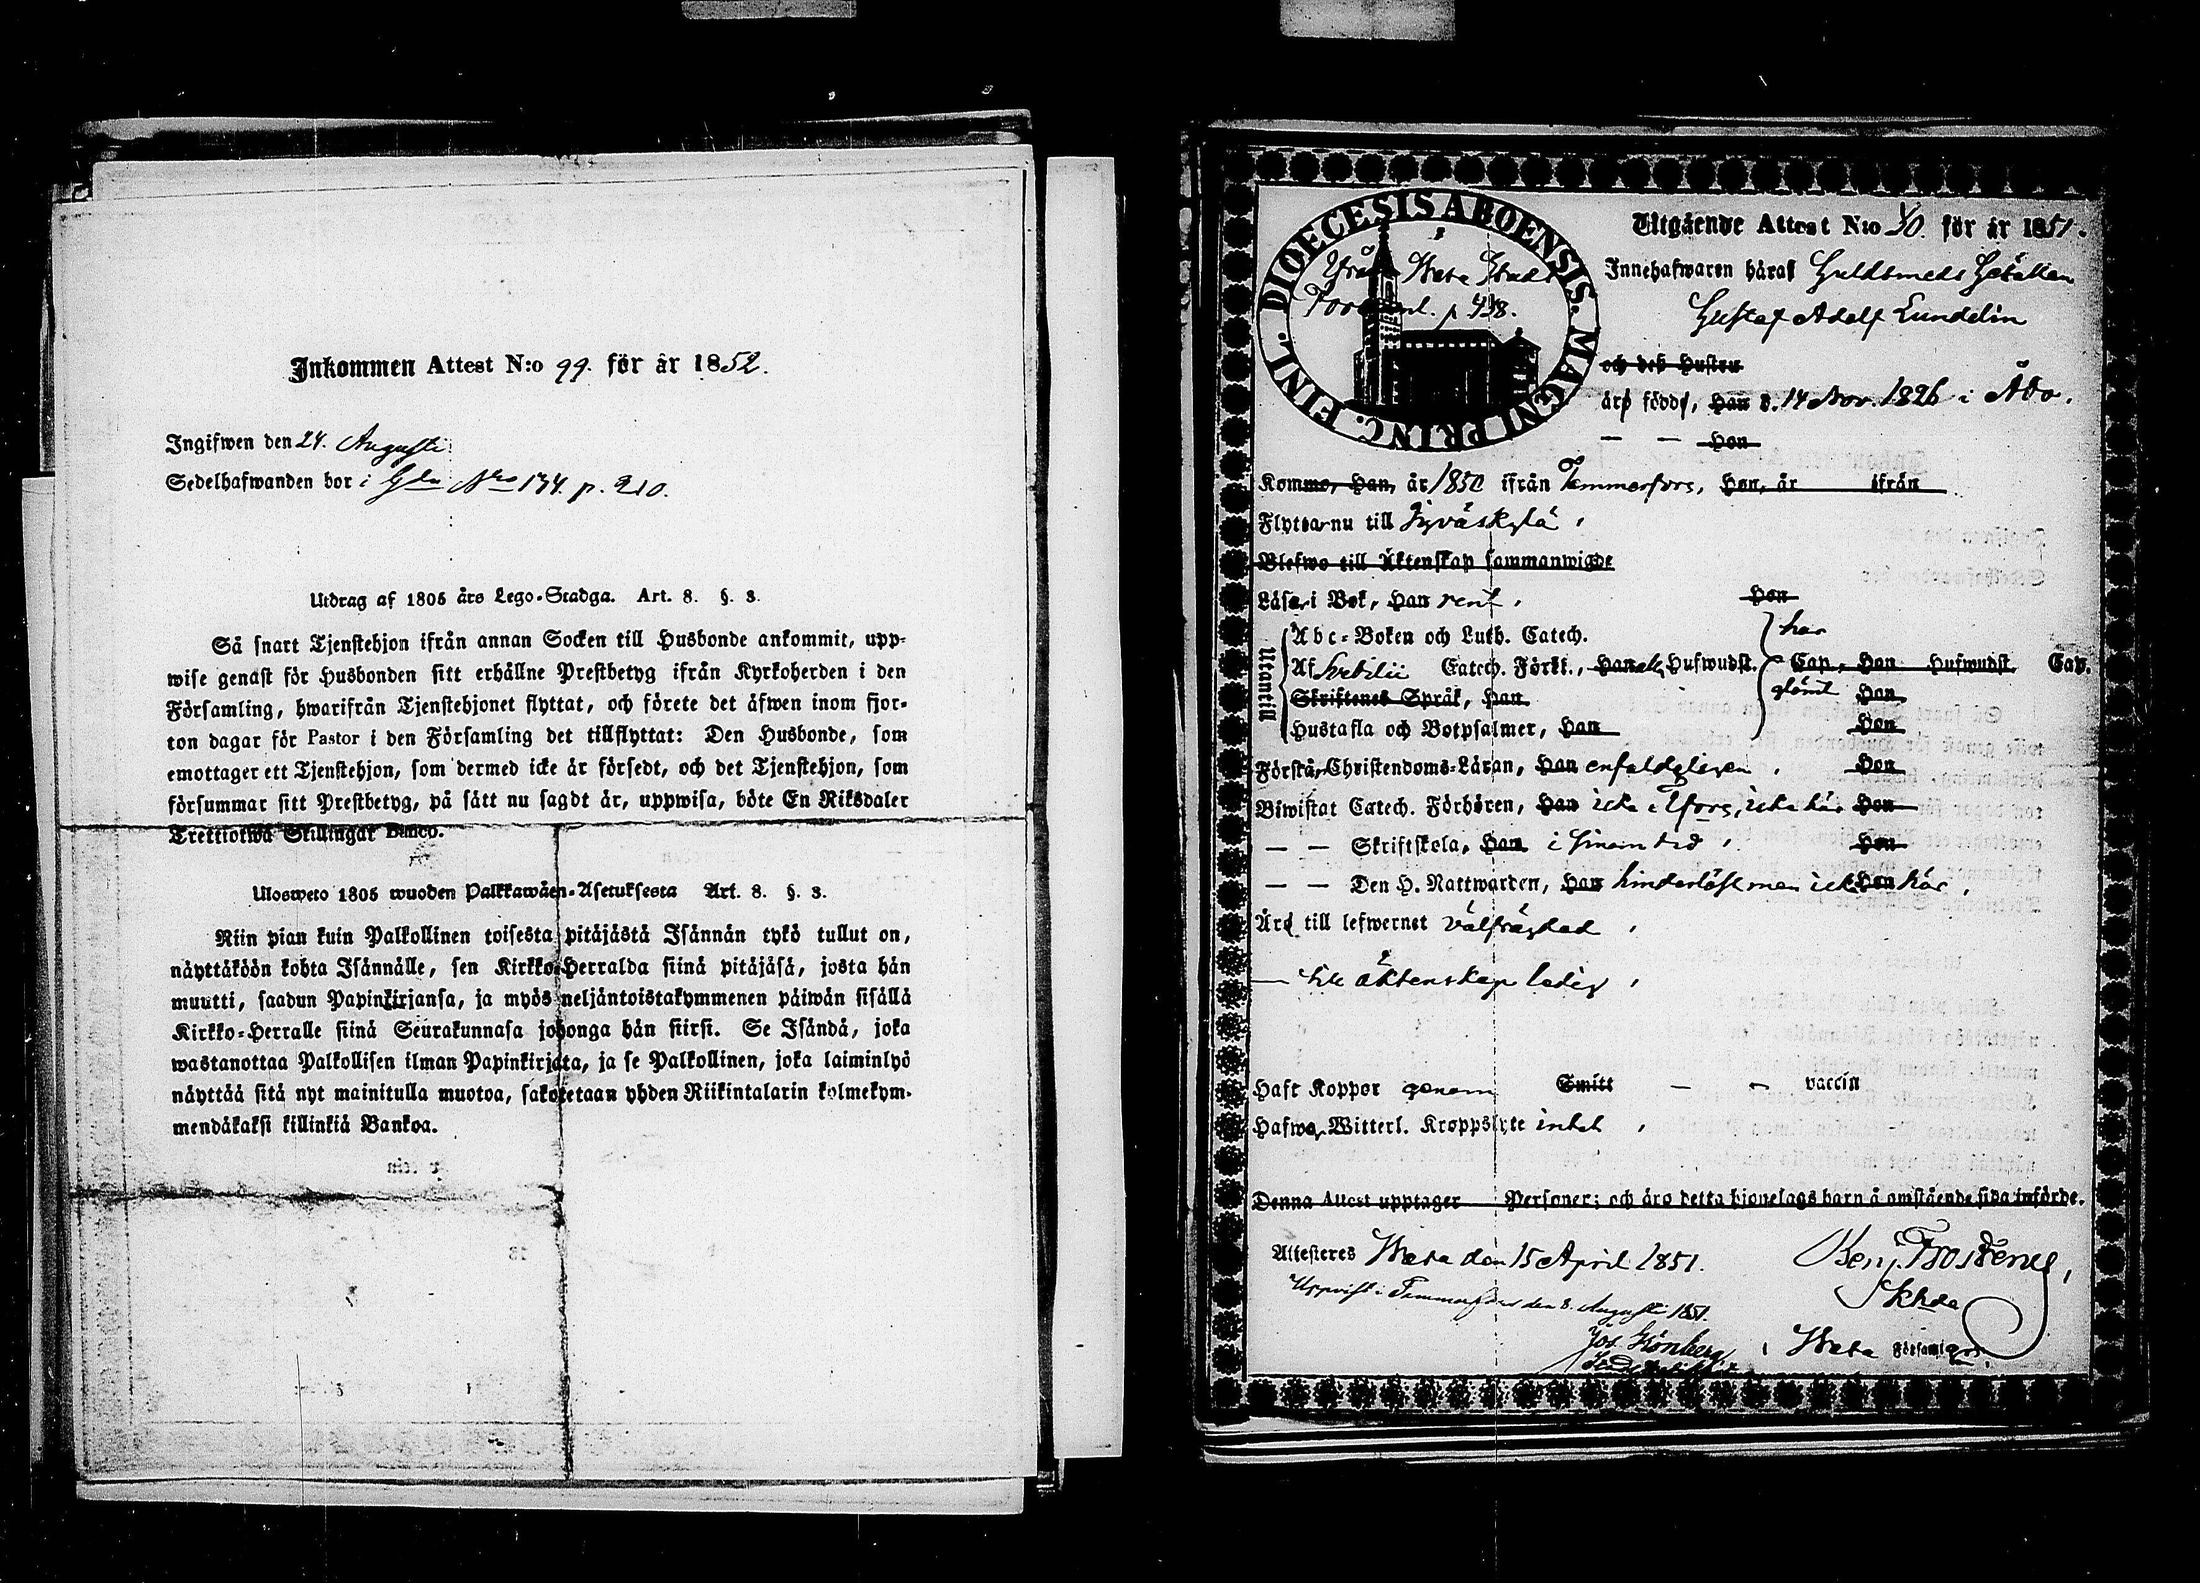 Inkommen Attest N:o 99. för år 1852.
Ingifwen den 24. Augusti
Sedelhafwanden bor i Gdn Nro 134. p. 210.
Utdrag af 1805 års Lego-Stadga. Art. 8. §. 3.
Så snart Tjenstehjon ifrån annan Socken till Husbonde ankommit, upp-
wise genast för Husbonden sitt erhållne Prestbetyg ifrån Kyrkoherden i den
Församling, hwarifrån Tjenstehjonet flyttat, och förete det äfwen inom fjor-
ton dagar för Pastor i den Församling det tillflyttat: Den Husbonde, som
emottager ett Tjenstehjon, som dermed icke är försedt, och det Tjenstehjon, som
försummar sitt Prestbetyg, på sätt nu sagdt är, uppwisa, böte En Riksdaler
Trettiotwå Skillingar Banco.
Ulosweto 1805 wuoden Palkkawäen-Asetuksesta Art. 8. §. 3.
Niin pian kuin Palkollinen toisesta pitäjästä Isännän tykö tullut on,
näyttäköön kohta Isännälle, sen Kirkko-Herralda siinä pitäjäsä, josta hän
muutti, saadun Papinkirjansa, ja myös neljäntoistakymmenen päiwän sisällä
Kirkko-Herralle siinä Seurakunnasa johonga hän siirsi. Se Isändä, joka
wastanottaa Palkollisen ilman Papinkirjata, ja se Palkollinen, joka laiminlyö
näyttää sitä nyt mainitulla muotoa, sakotetaan yhden Riikintalarin kolmekym-
mendäkaksi killinkiä Bankoa.
DIOECESIS ABOENSIS. MAGNI PRINC. FINL.
Utgående Attest N:o 40. för år 1851.
Från Wasa Stads
p. 438.
Innehafwaren häraf Guldsmeds Gesällen
Gustaf Adolf Lundelin
och des Hustru
äro födde, Han d. 14 Nov. 1826 i Åbo.
— — Hon
Kommo, Han, år 1850 ifrån Tammerfors, Hon, år ifrån
Flyttar nu till Jyväskylä,
Blefwo till Äktenskap sammanwigde
Läsa i Bok, Han rent, Hon
Utantill
Abc-Boken och Luth. Catech. har
Af Svebilii Catech. Förkl., Han Hufwudst. Cap., Hon Hufwudst. Cap.
Skriftenes Språk, Han glömt Hon
Hustafla och Botpsalmer, Han Hon
Förstå Christendoms-Läran, Han enfaldeligen, Hon
Biwistat Catech. Förhören, Han icke i Tfors, icke här Hon
— — Skriftskola, Han i sinom tid, Hon
— — Den H. Nattwarden, Han hinderlöst men icke Hon här,
Äro till lefwernet välfrägdad,
— till äktenskap ledig,
Haft Koppor genom Smitt — — vaccin
Hafwa Witterl. Kroppslyte intet,
Denna Attest upptager Personer; och äro detta hjonelags barn å omstående sida införde.
Attesteres Wasa den 15 April 1851. Benj. Frosterus,
Skhde
Uppvist i Tammerfors den 8. Augusti 1851.
Jos. Grönberg
i Wasa Församling.